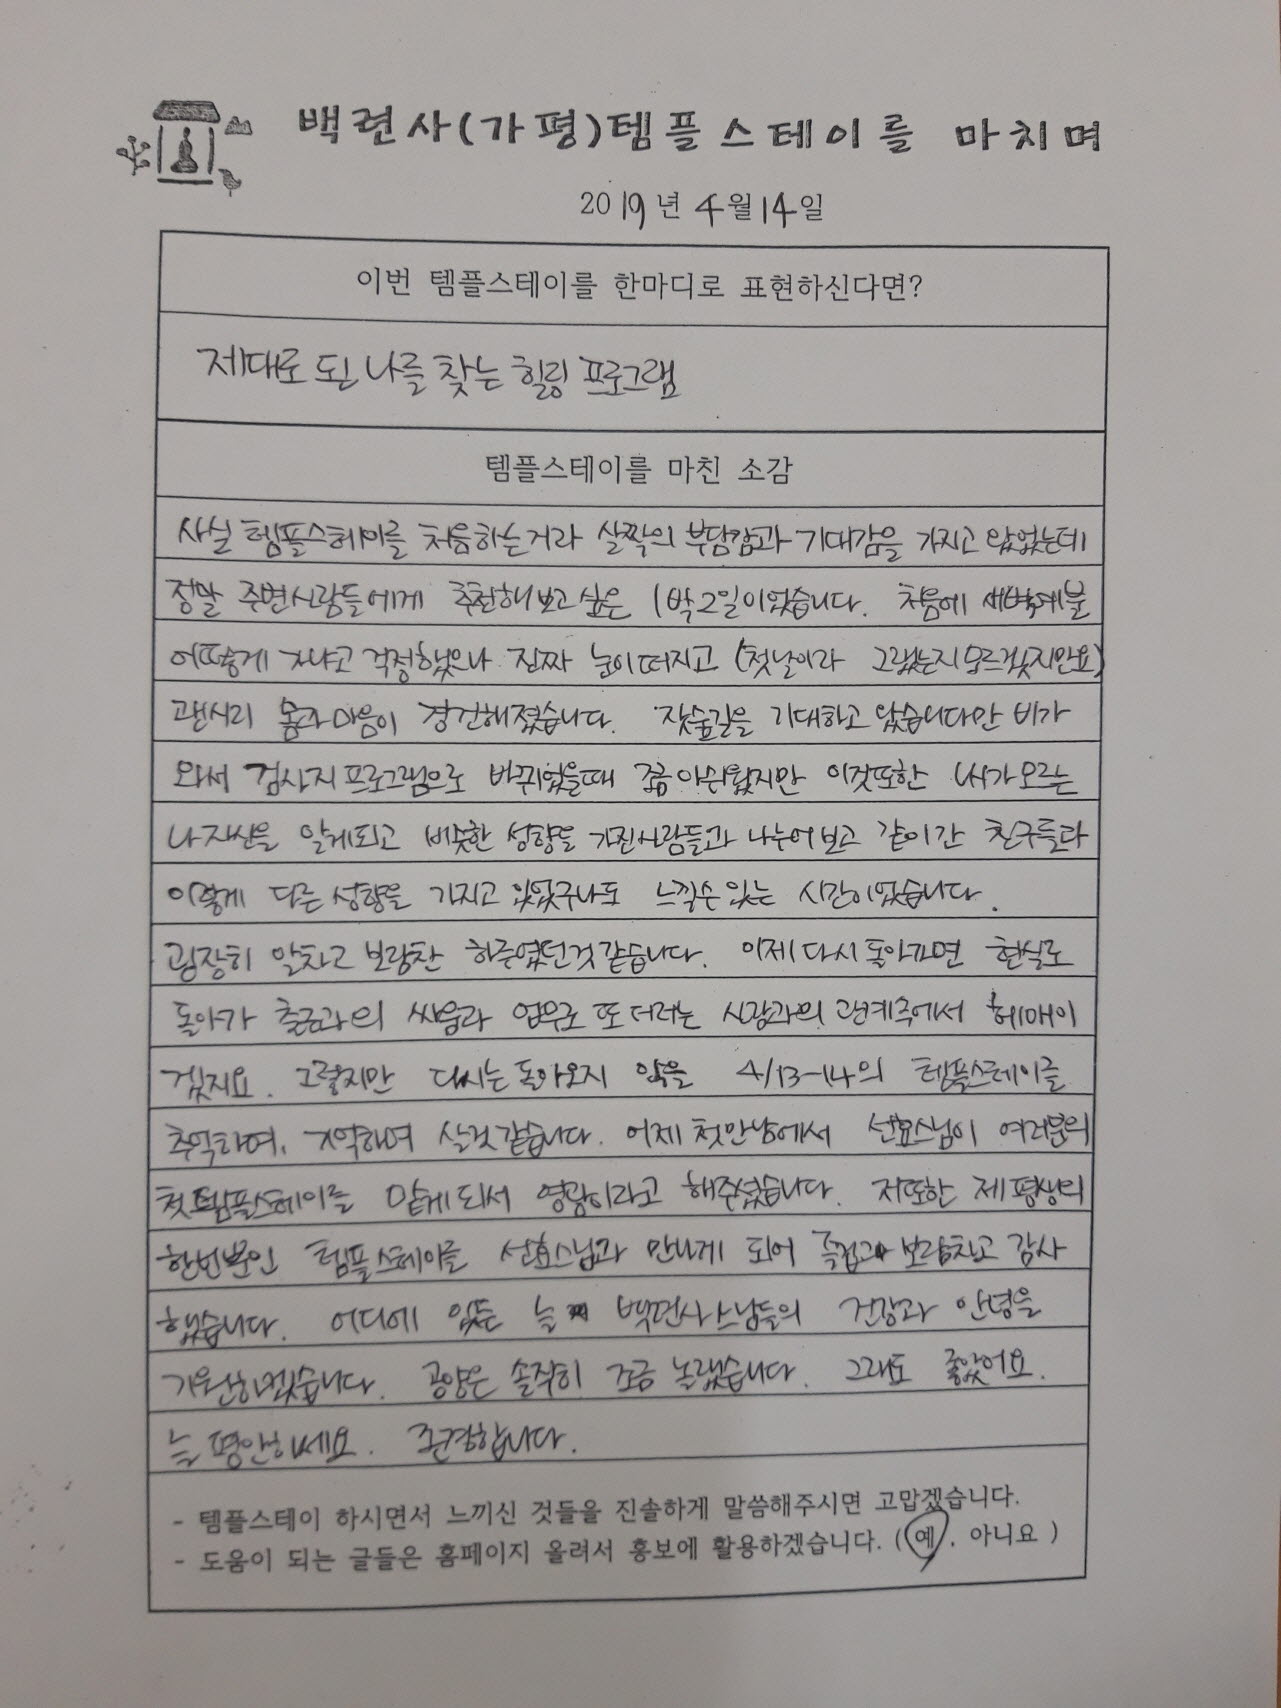 백련사(가평)템플스테이를 마치며
2019년 4월 14일
이번 템플스테이를 한마디로 표현하신다면?
제대로 된 나를 찾는 힐링 프로그램
템플스테이를 마친 소감
사실 템플스테이를 처음하는거라 살짝의 부담감과 기대감을 가지고 왔었는데
정말 주변사람들에게 추천해보고싶은 1박2일이었습니다. 처음에 새벽예불
어떻게 가냐고 걱정했으나 진짜 눈이떠지고 (첫날이라 그랬는지모르겠지만요)
괜시리 몸과마음이 경건해졌습니다. 잣숲길을 기대하고 있었습니다만 비가
와서 검사지프로그램으로 바뀌었을때 조금 아쉬웠지만 이것또한 내가모르는
나자신을 알게되고 비슷한 성향을 가진사람들과 나누어보고 같이간 친구들과
이렇게 다른성향을 가지고 있었구나도 느낄수있는 시간이었습니다.
굉장히 알차고 보람찬 하루였던것같습니다. 이제다시돌아가면 현실로
돌아가 출근과의 싸움과 업무로 또 더러는 사람과의관계속에서 헤매이
겠지요. 그렇지만 다시는돌아오지 않을 4/13-14의 템플스테이를
추억하며, 기억하며 살것같습니다. 어제첫만남에서 선효스님이 여러분의
첫템플스테이를 맡게되서 영광이라고 해주셨습니다. 저또한 제평생의
한번뿐인 템플스테이를 선효스님과 만나게 되어 즐겁고 보람차고 감사
했습니다. 어디에 있든 늘 백련사스님들의 건강과 안녕을
기원하겠습니다. 공양은 솔직히 조금 놀랬습니다. 그래도 좋았어요.
늘 평안하세요. 존경합니다.
- 템플스테이 하시면서 느끼신 것들을 진솔하게 말씀해주시면 고맙겠습니다.
- 도움이 되는 글들은 홈페이지 올려서 홍보에 활용하겠습니다. (예, 아니요 )